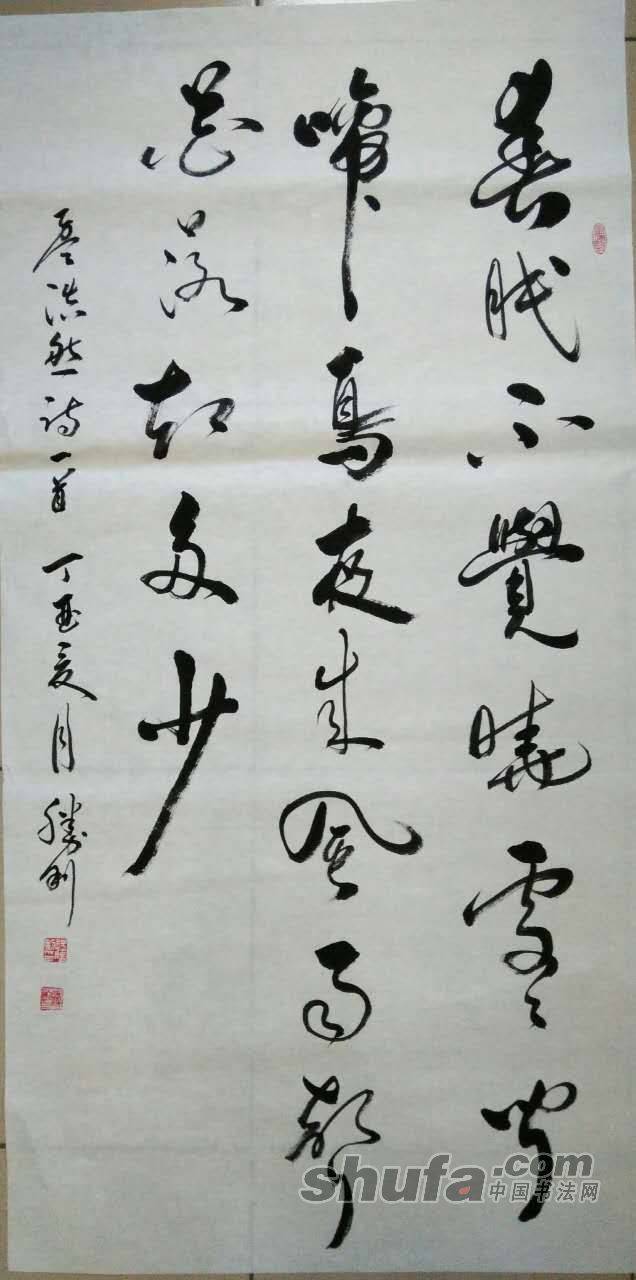 春眠不覺曉處々聞
啼鳥夜来風雨聲
花落知多少
孟浩然诗一首 丁酉夏月 勝利
shufa.com
中国书法网